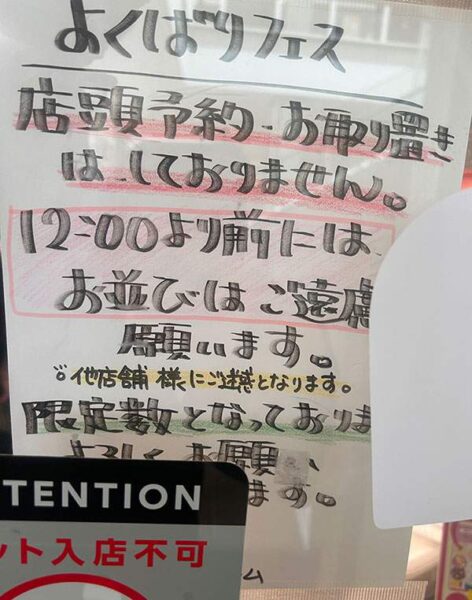 よくばりフェス
店頭予約・お取り置き
はしておりません。
12:00より前には、
お並びはご遠慮
願います。
※他店舗様にご迷惑となります。
限定数となっておりま
よろしくお願い
ます。
TENTION
ット入店不可
ム